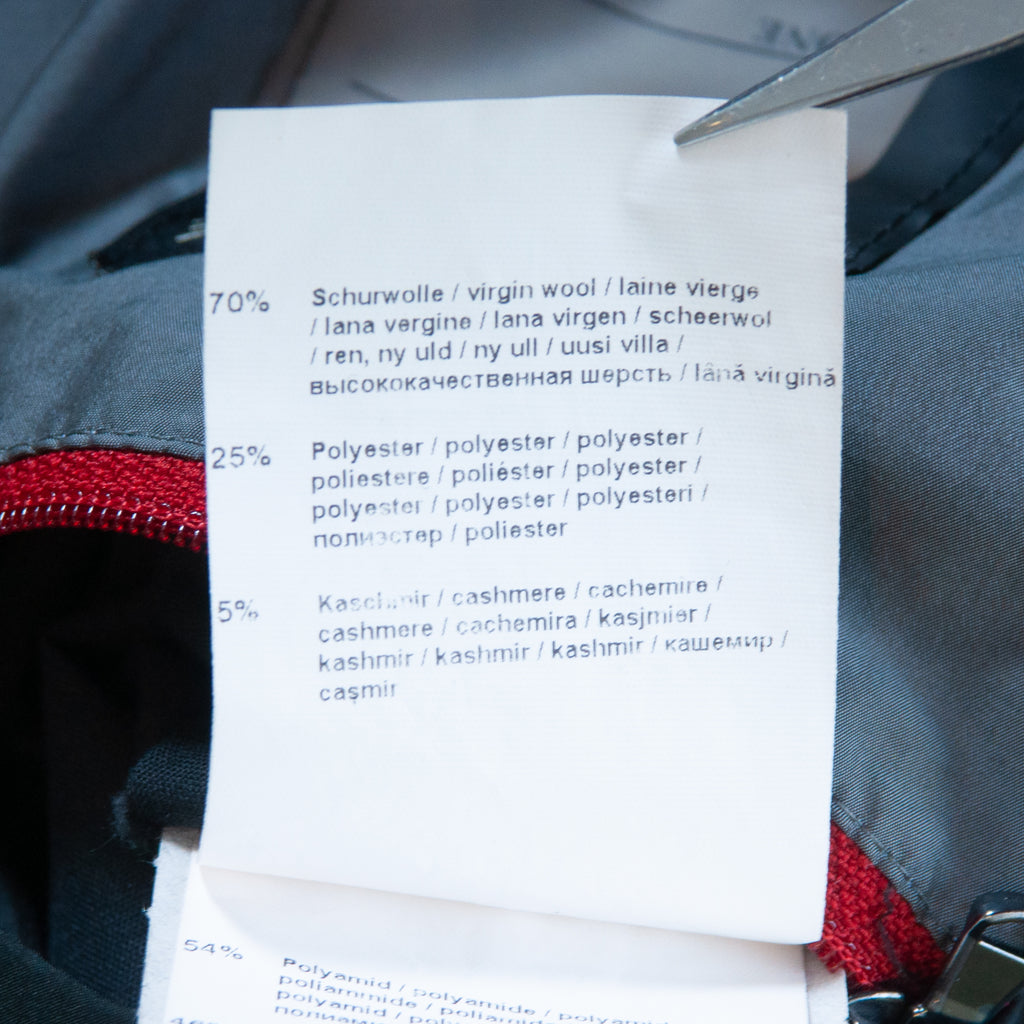 70% Schurwolle / virgin wool / laine vierge
/ lana vergine / lana virgen / scheerwol
/ ren, ny uld / ny ull / uusi villa /
высококачественная шерсть / lână virgină
25% Polyester / polyester / polyester /
poliestere / poliéster / polyester /
polyester / polyester / polyesteri /
полиэстер / poliester
5% Kaschmir / cashmere / cachemire /
cashmere / cachemira / kasjmier /
kashmir / kashmir / kashmir / кашемир /
cașmir
54% Polyamid / polyamide / polyamid
poliammide / poliamida
polyamid /